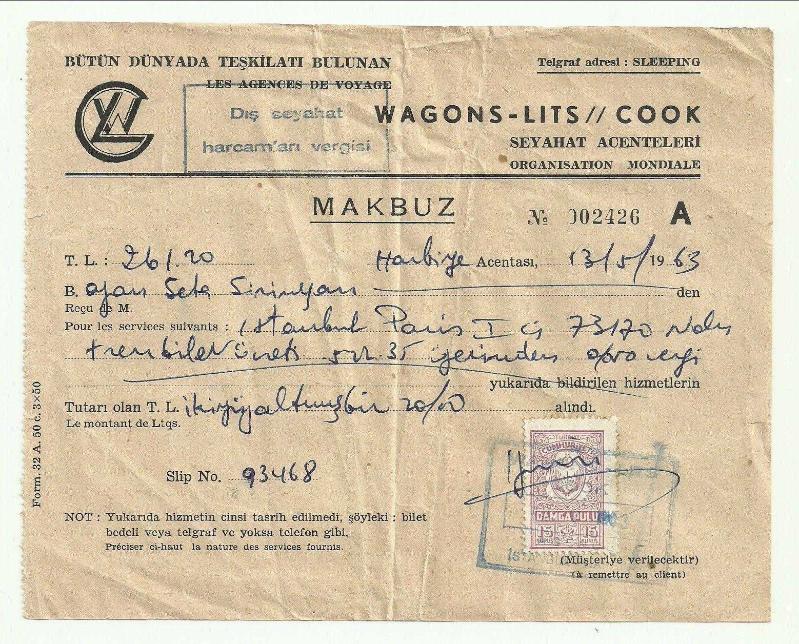 BÜTÜN DÜNYADA TEŞKİLATI BULUNAN
Telgraf adresi : SLEEPING
LES AGENCES DE VOYAGE
Dış seyahat
harcam'arı vergisi
WAGONS-LITS // COOK
SEYAHAT ACENTELERİ
ORGANISATION MONDIALE
MAKBUZ
№ 002426 A
T. L. : 261.20 Harbiye Acentası, 13/5/1963
B. ayan Seta Sirinyan den
Reçu de M.
Pour les services suivants : İstanbul Paris I 73170
tren bilet ücreti 35 üzerinden
yukarıda bildirilen hizmetlerin
Tutarı olan T. L. ikiyüzaltmışbir 20/00 alındı.
Le montant de Ltqs.
Form. 32 A. 50 c. 3×50
Slip No. 93468
CUMHURİYETİ
DAMGA PULU
15 15
NOT : Yukarıda hizmetin cinsi tasrih edilmedi, şöyleki : bilet
bedeli veya telgraf ve yoksa telefon gibi.
Préciser ci-haut la nature des services fournis.
(Müşteriye verilecektir)
(à remettre au client)